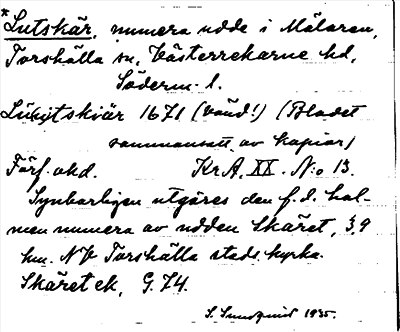 *Lutskär, numera udde i Mälaren,
Torshälla sn, Västerrekarne hd,
Söderm. l.
Lükijtskiär 1671 (vård!) (Bladet
sammansatt av kopior)
Förf. okd. Kr.A. XX. N:o 13.
Synbarligen utgöres den f.d. hol-
men numera av udden Skäret, 3,9
km. NV Torshälla stads kyrka.
Skäret ek, G.74.
S. Sundqvist 1935.